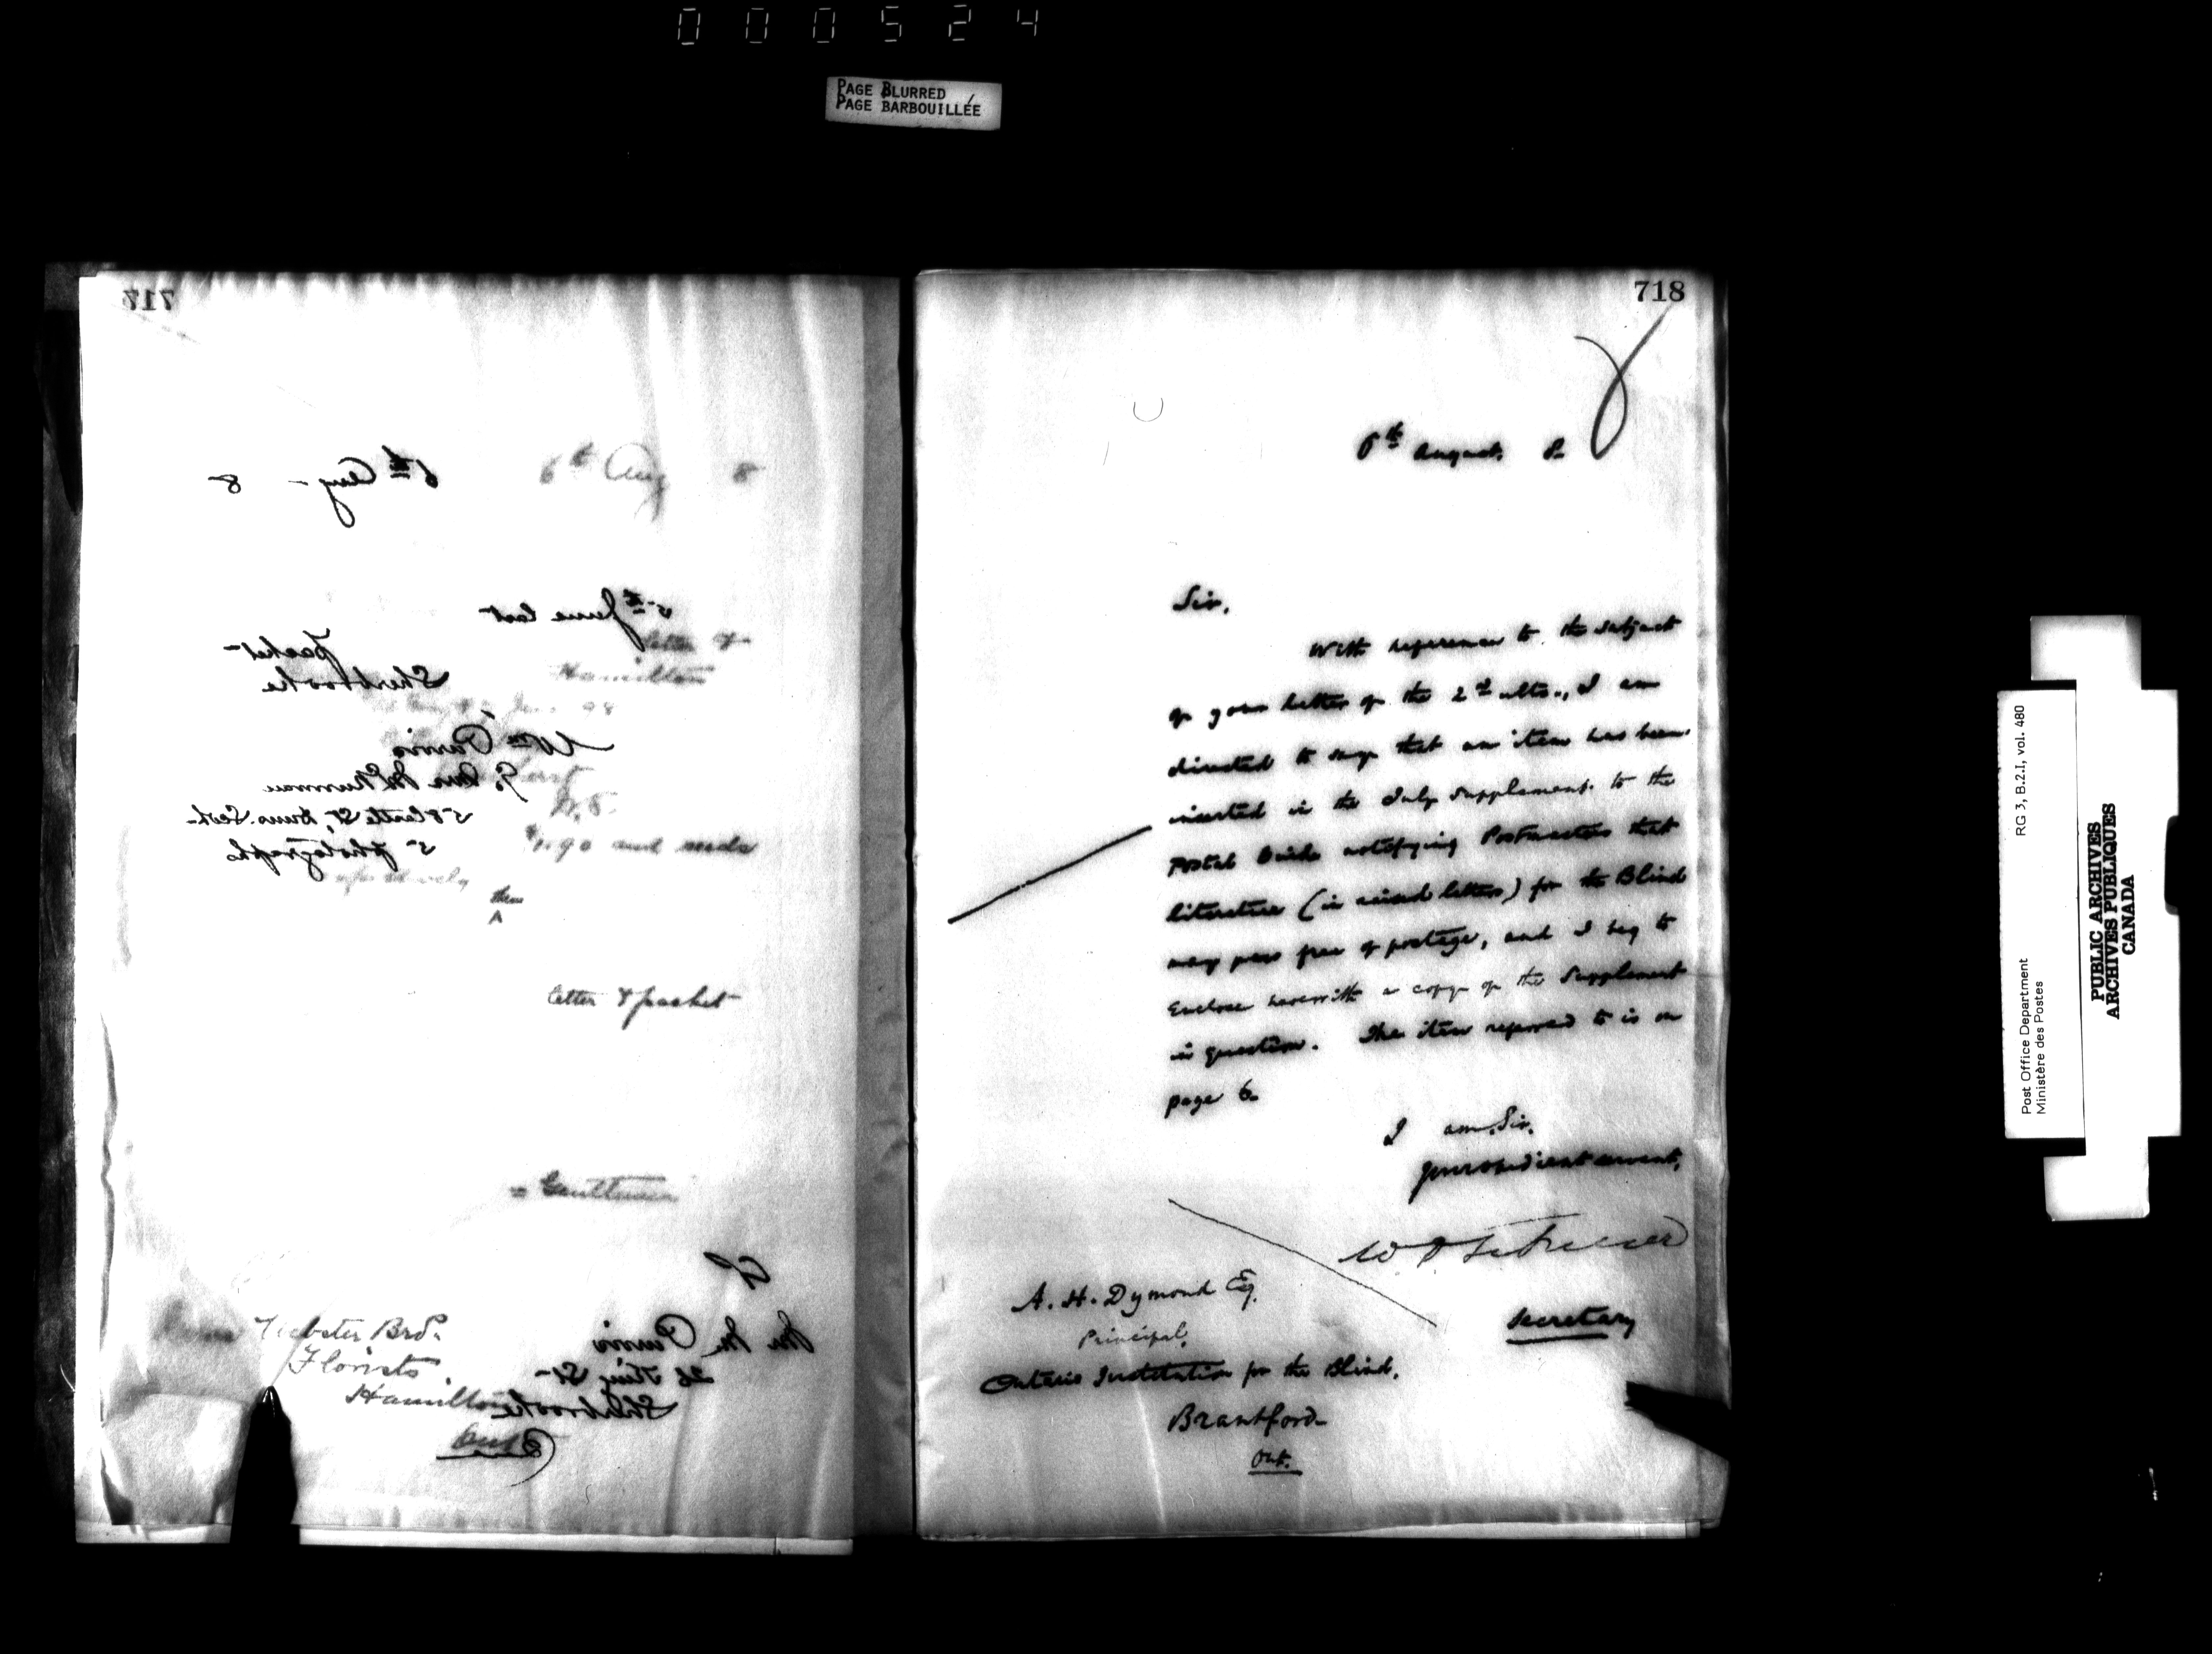 000524
PAGE BLURRED
PAGE BARBOUILLÉE
717
6th Aug - 8
5th June last
packet
Sherbrooke
Wm Purvis
58 Castle St,
5 photographs
Mr M. Purvis
26 King St
Sherbrooke
6th Aug 8
letter of
Hamilton
N.S.
$1.90 and seeds
respectively
them
letter & packet
Gentlemen
Webster Bros.
Florists
Hamilton
Ont
718
6th August. 8
Sir,
With reference to the subject
of your letter of the 2nd ulto., I am
directed to say that an item has been
inserted in the July Supplement to the
Postal Guide notifying Postmasters that
literature (in raised letters) for the Blind
may pass free of postage, and I beg to
enclose herewith a copy of the Supplement
in question. The item referred to is on
page 6.
I am, Sir,
Your obedient servant,
Secretary
A. H. Dymond Esq.
Principal,
Ontario Institution for the Blind,
Brantford
Ont.
Post Office Department
Ministère des Postes
RG 3, B.2.I, vol. 480
PUBLIC ARCHIVES
ARCHIVES PUBLIQUES
CANADA